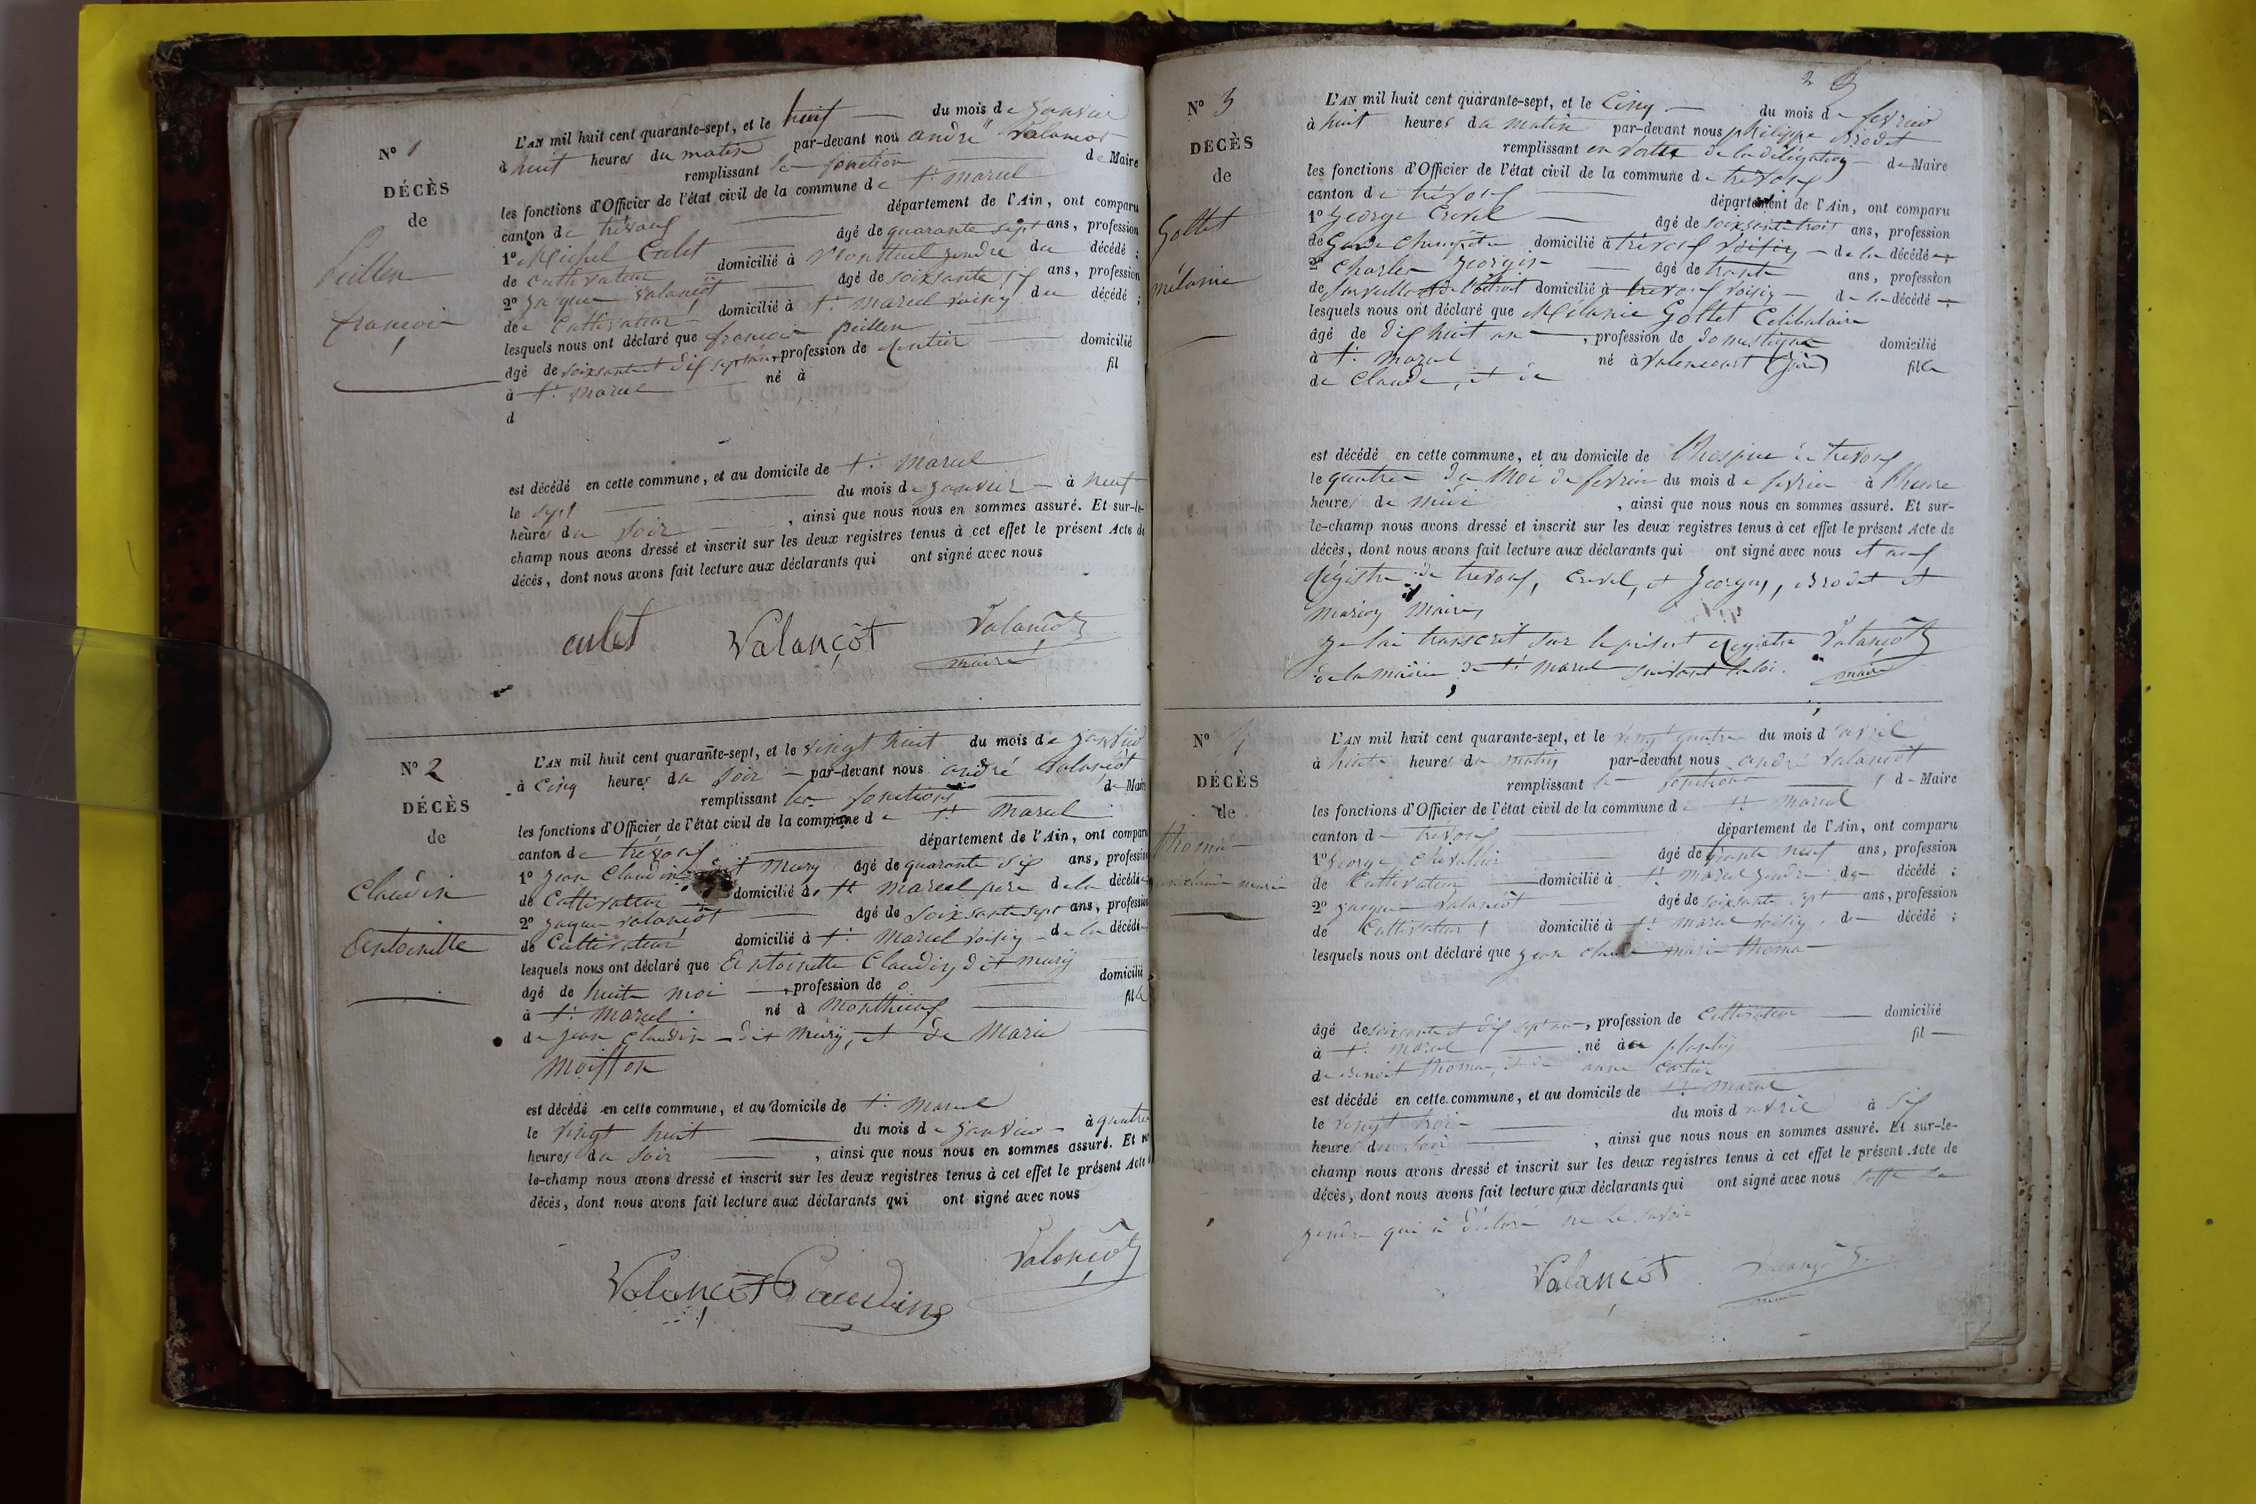 N° 1
DÉCÈS
de
Peillen
françois
L'AN mil huit cent quarante-sept, et le huit du mois de janvier
à huit heures du matin par-devant nous andré Valançot
remplissant les fonction de Maire
les fonctions d'Officier de l'état civil de la commune de St. marcel
canton de trévoux département de l'Ain, ont comparu
1° Michel Culet âgé de quarante sept ans, profession
de cultivateur domicilié à gendre du décédé ;
2° jaque valançot âgé de soixante six ans, profession
de Cultivateur domicilié à St. marcel voisin du décédé ;
lesquels nous ont déclaré que françois peillen
âgé de soixante et dix sept ans, profession de rentier domicilié
à St. marcel né à fil
d
est décédé en cette commune, et au domicile de St. marcel
le sept du mois de janvier à neuf
heures du soir , ainsi que nous nous en sommes assuré. Et sur-le-
champ nous avons dressé et inscrit sur les deux registres tenus à cet effet le présent Acte de
décès, dont nous avons fait lecture aux déclarants qui ont signé avec nous
culet Valançot Valançot
maire
N° 2
DÉCÈS
de
Claudin
Antoinette
L'AN mil huit cent quarante-sept, et le vingt huit du mois de janvier
à Cinq heures du soir par-devant nous andré Valançot
remplissant les fonctions de Maire
les fonctions d'Officier de l'état civil de la commune de St. marcel
canton de trévoux département de l'Ain, ont comparu
1° jean Claudin dit mury âgé de quarante dix ans, profession
de Cultivateur domicilié à St. marcel pere de la décédé
2° jaque valançot âgé de soixante sept ans, profession
de Cultivateur domicilié à St. marcel voisin de la décédé
lesquels nous ont déclaré que Antoinette Claudin dit mury
âgé de huite moi , profession de o domicilié
à St. marcel né à monthieux fille
de jean Claudin dit mury, et de Marie
Moisson
est décédé en cette commune, et au domicile de St. marcel
le vingt huit du mois de janvier à quatre
heures du soir , ainsi que nous nous en sommes assuré. Et sur
le-champ nous avons dressé et inscrit sur les deux registres tenus à cet effet le présent Acte
décès, dont nous avons fait lecture aux déclarants qui ont signé avec nous
Valançot Claudin Valançot
N° 3
DÉCÈS
de
Gollet
mélanie
L'AN mil huit cent quarante-sept, et le Cinq du mois de fevrier
à huit heures du matin par-devant nous philippe Brodet
remplissant en vertu de la délégation de Maire
les fonctions d'Officier de l'état civil de la commune de trévoux
canton de trévoux département de l'Ain, ont comparu
1° George Crevel âgé de soixante trois ans, profession
de Garde Champêtre domicilié à trévoux voisin de la décédé ;
2° Charles Georges âgé de trente ans, profession
de Surveillant de l'octroi domicilié à trevoux voisin de la décédé
lesquels nous ont déclaré que Mélanie Gollet Célibataire
âgé de dix huit an , profession de domestique domicilié
à St. marcel né à Valencourt (jura) fille
de Claude, et de
est décédé en cette commune, et au domicile de l'hospice de trevoux
le quatre du moi de fevrier du mois de fevrier à l'heure
heures de midi , ainsi que nous nous en sommes assuré. Et sur-
le-champ nous avons dressé et inscrit sur les deux registres tenus à cet effet le présent Acte de
décès, dont nous avons fait lecture aux déclarants qui ont signé avec nous et aux
régistre de trevoux, Crevel, et Georges, Brodet et
maire
je lai transcrit sur le présent registre Valançot
de la mairie de St. marcel suivant la loi. maire
N° 4
DÉCÈS
de
thoma
jean claude marie
L'AN mil huit cent quarante-sept, et le vingt quatre du mois d'avril
à huite heures du matin par-devant nous andré Valançot
remplissant les fonctions de Maire
les fonctions d'Officier de l'état civil de la commune de St. marcel
canton de trevoux département de l'Ain, ont comparu
1° George Chevallier âgé de trente neuf ans, profession
de Cultivateur domicilié à St. marcel gendre du décédé ;
2° jaque valançot âgé de soixante sept ans, profession
de Cultivateur domicilié à St. marcel voisin du décédé ;
lesquels nous ont déclaré que jean claude marie thoma
âgé de soixante et dix sept an, profession de Cultivateur domicilié
à St. marcel né au plantay fil
de Benoit thoma, et de anne
est décédé en cette commune, et au domicile de St. marcel
le vingt trois du mois d'avril à six
heures du soir , ainsi que nous nous en sommes assuré. Et sur-le-
champ nous avons dressé et inscrit sur les deux registres tenus à cet effet le présent Acte de
décès, dont nous avons fait lecture aux déclarants qui ont signé avec nous soffe le
gendre qui a déclaré ne le savoir
Valançot Valançot
maire